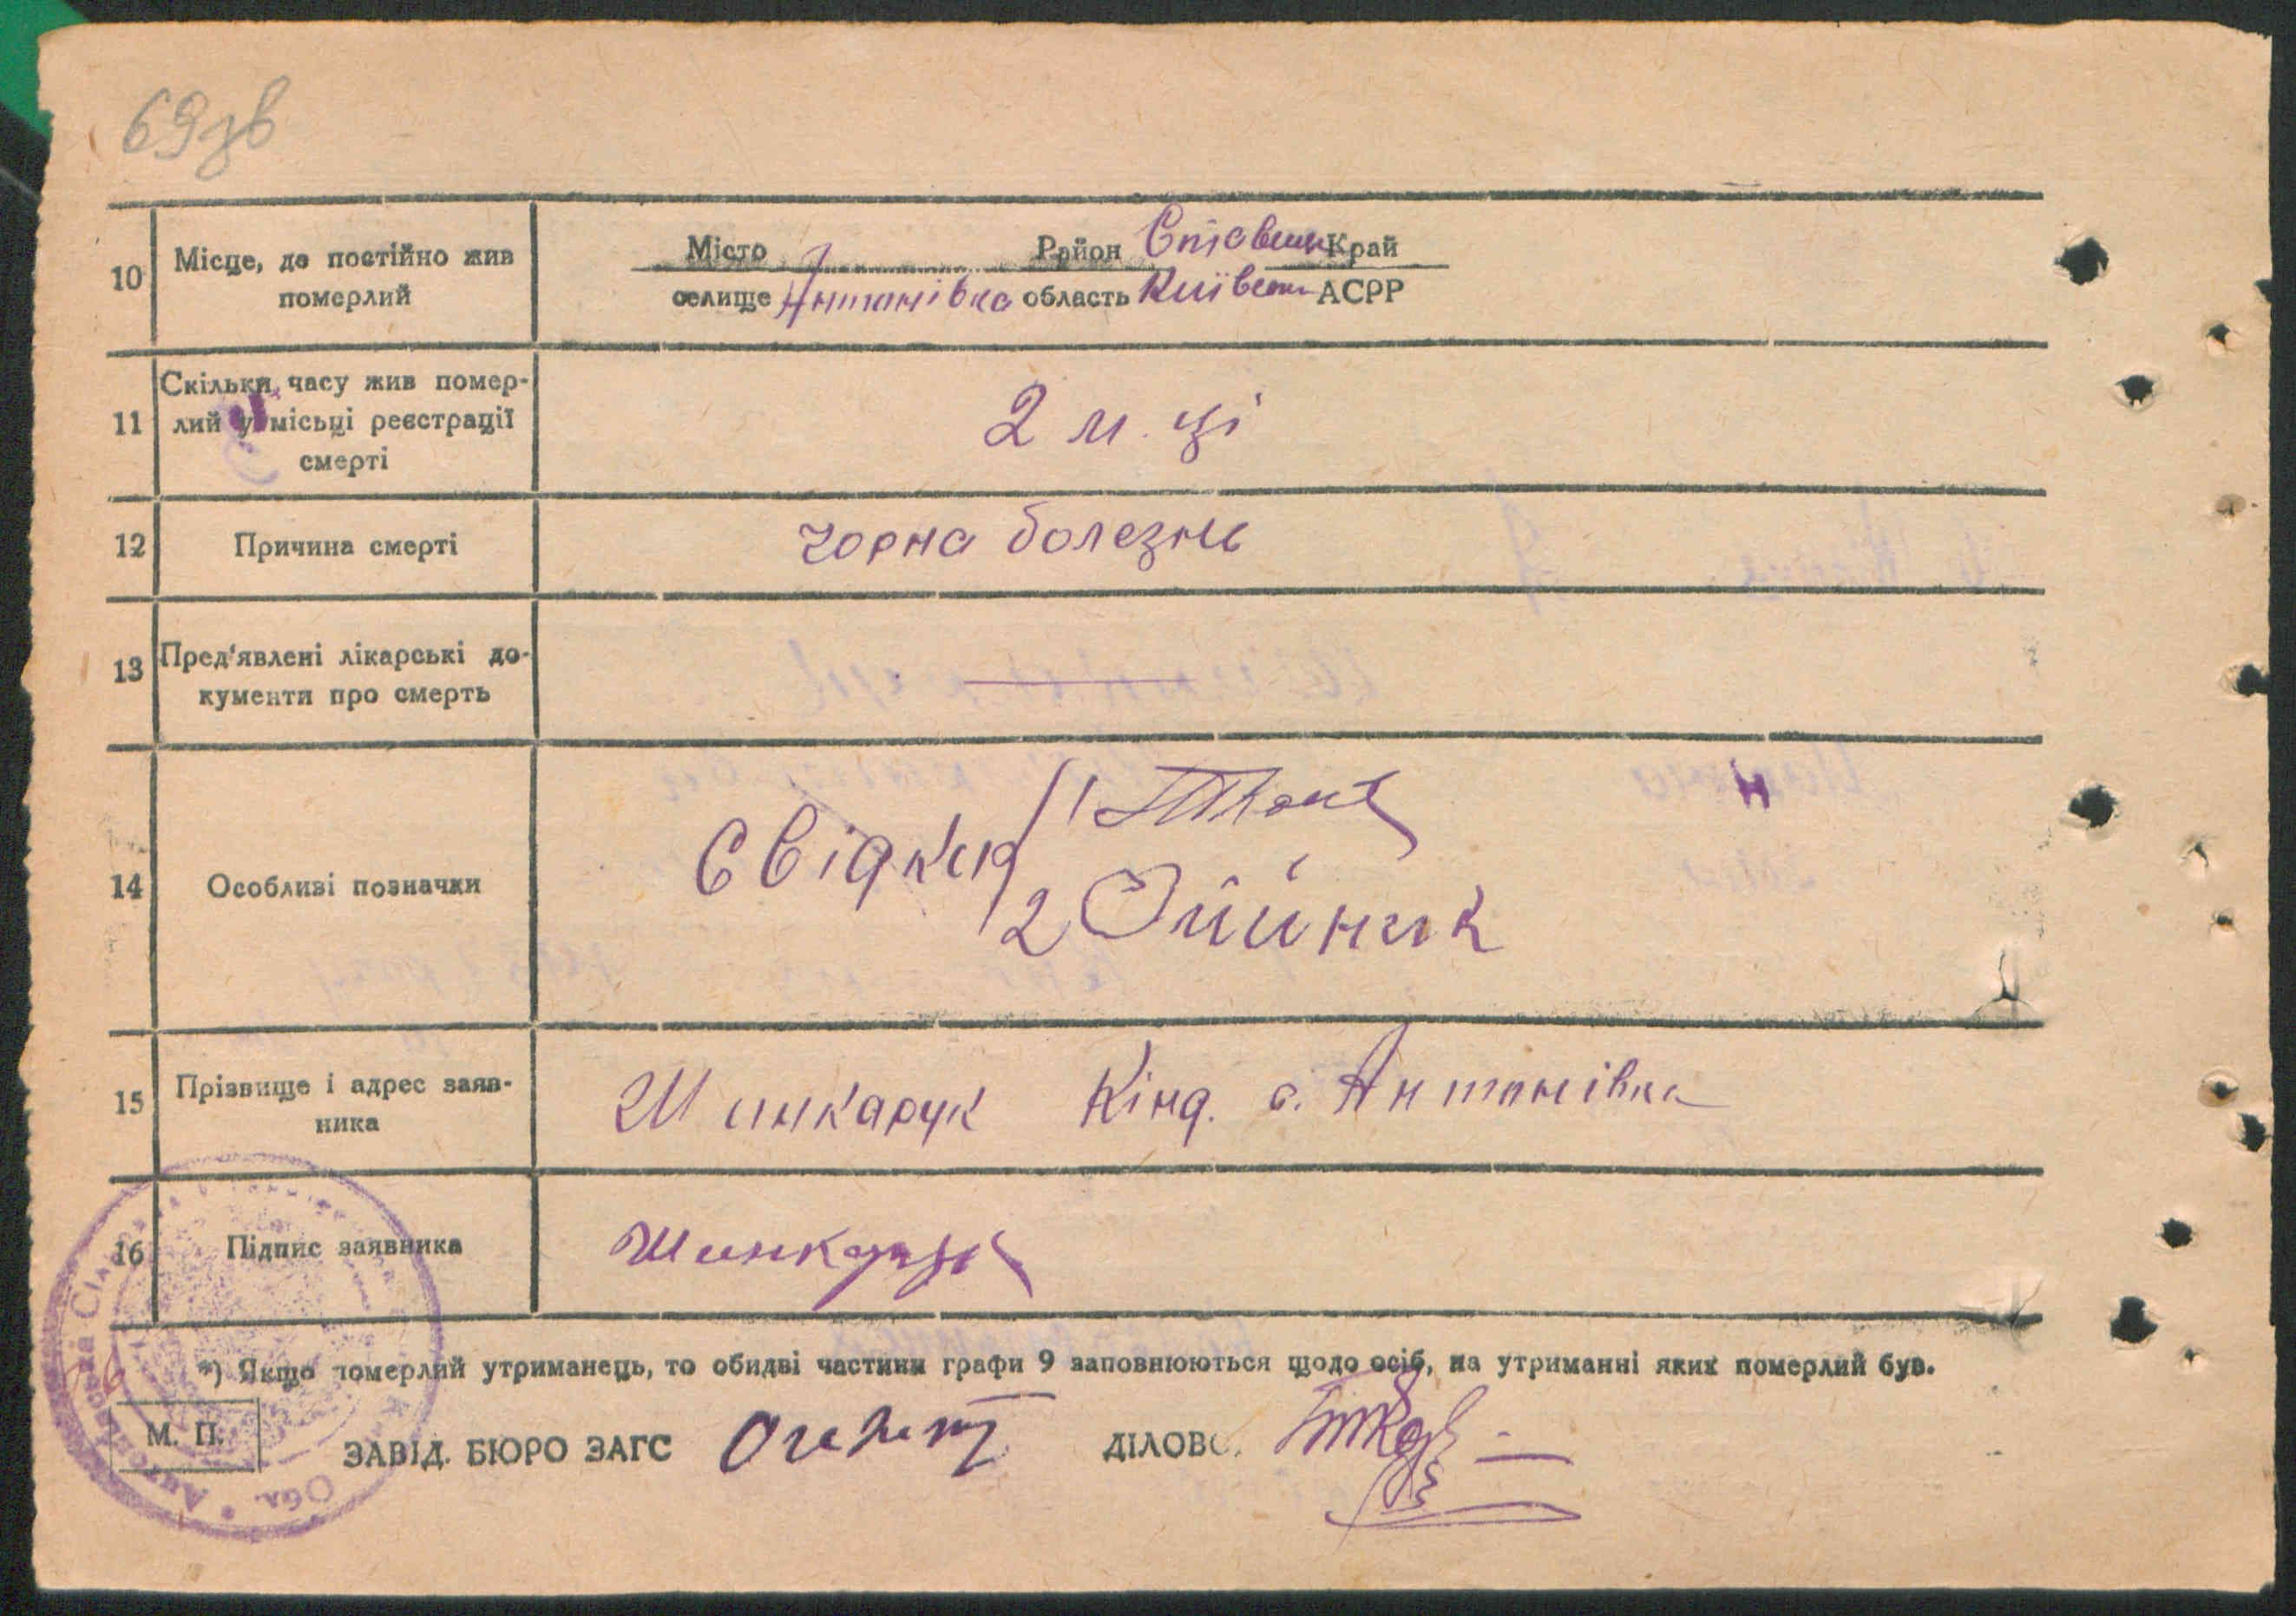 69зв
10 Місце, де постійно жив померлий
Місто Район Ставищ Край
селище Антонівка область Київськ АСРР
11 Скільки часу жив помер-
лий у місці реєстрації
смерті
2 м. ці
12 Причина смерті
чорна болезнь
13 Пред'явлені лікарські до-
кументи про смерть
14 Особливі позначки
Свідки 1
2 Олійник
15 Прізвище і адрес заяв-
ника
Шинкарук Кінд. с. Антонівка
16 Підпис заявника
Шинкарук
*) Якщо померлий утриманець, то обидві частини графи 9 заповнюються щодо осіб, на утриманні яких померлий був.
М. П.
ЗАВІД. БЮРО ЗАГС ДІЛОВ